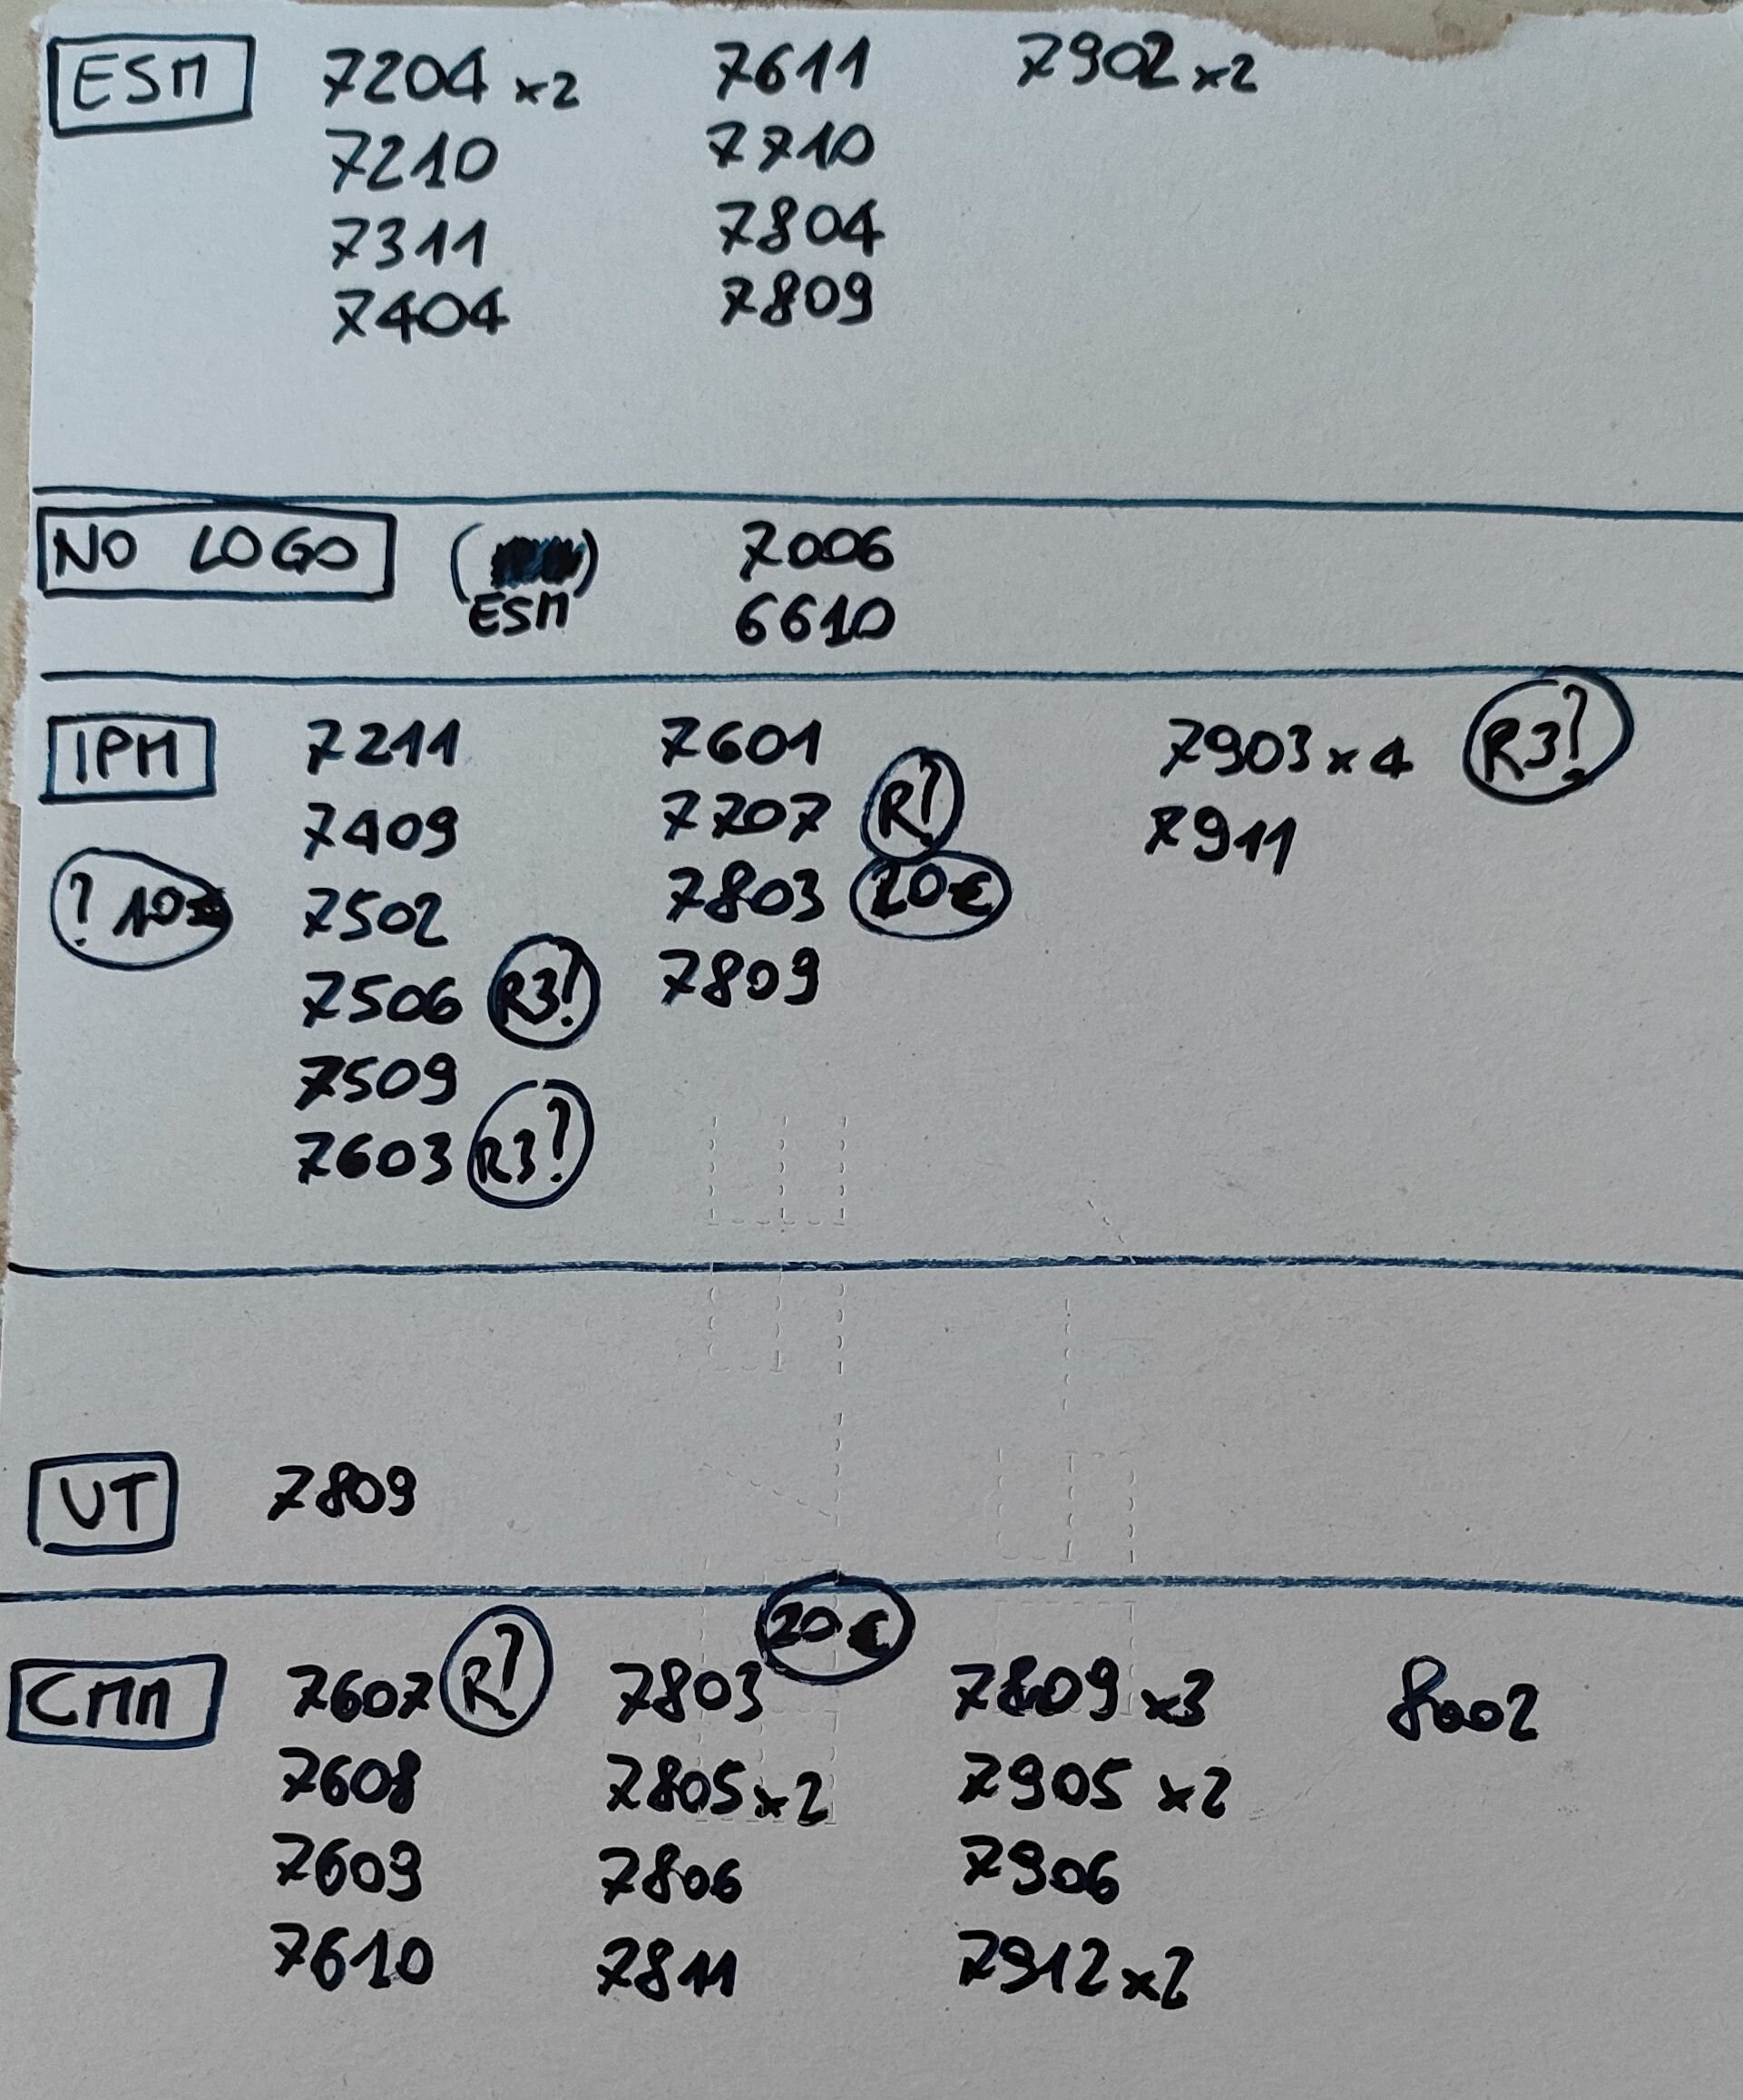 ESM 7204 x2 7611 7902 x2
7210 7710
7311 7804
7404 7809
NO LOGO ( ) 7006
ESM 6610
IPM 7211 7601 7903 x 4 R3?
7409 7707 R? 7911
? 10€ 7502 7803 20€
7506 R3? 7809
7509
7603 R3?
UT 7809
20€
CMM 7607 R? 7803 7809 x3 8002
7608 7805 x2 7905 x2
7609 7806 7906
7610 7811 7912 x2